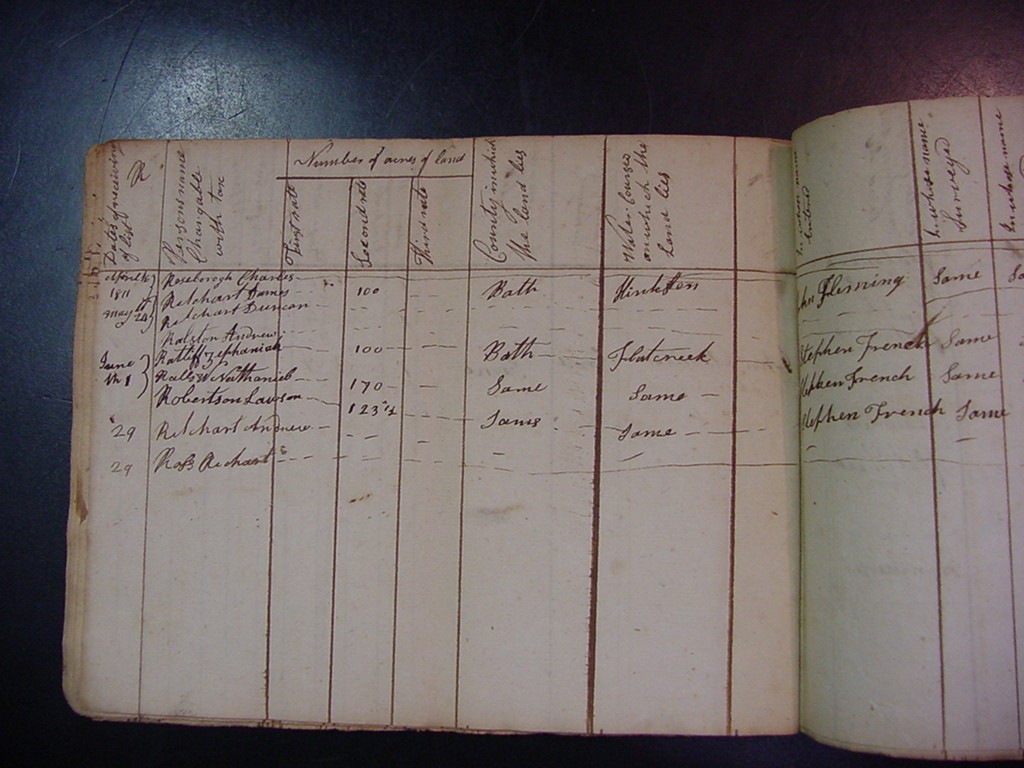 Dates of receiving of list
R
Persons name Chargable with tax
Number of acres of land
First rate
Second rate
Third rate
County in which the land lies
Water courses on which the land lies
entered
In whose name Surveyed
In whose name
April 16 Rosebrough Charles
1811 Relchart James 100 Bath Hinkston Fleming Same
may 24 Relchart Duncan
Ralston Andrew
June Ratliff Zephaniah 100 Bath Flatcreek Stephen French Same
th 1 Nathaniel 170 Same Same Stephen French Same
Robertson Lawson 123 1/4 Same Same Stephen French Same
29 Relchart Andrew
29 Ross Richart